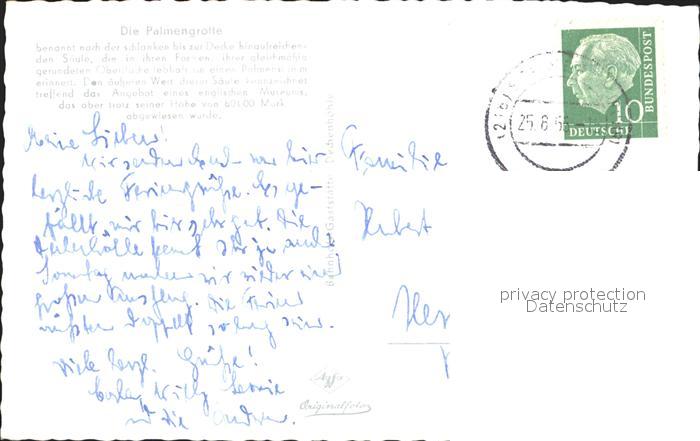 Die Palmengrotte
benannt nach der schlanken bis zur Decke hinaufreichen-
den Säule, die in ihren Formen, ihrer gleichmäßig
gerundeten Oberfläche lebhaft an einen Palmenstamm
erinnert. Den äußeren Wert dieser Säule kennzeichnet
treffend das Angebot eines englischen Museums,
das aber trotz seiner Höhe von 60000 Mark
abgewiesen wurde.
Meine Lieben!
Wir senden Euch von hier
herzliche Feriengrüße. Es ge-
fällt mir hier sehr gut. Die
Ihr ja auch
Sonntag machen wir wieder einen
großen Ausflug. Die Ferien
müßten doppelt so lang sein.
Viele herzl. Grüße!
Willy
und die
Bahnhofs-Gaststätte Dechenhöhle
Familie
Hubert
Her
25.8.56
10
DEUTSCHE
BUNDESPOST
privacy protection
Datenschutz
Agfa
Originalfoto